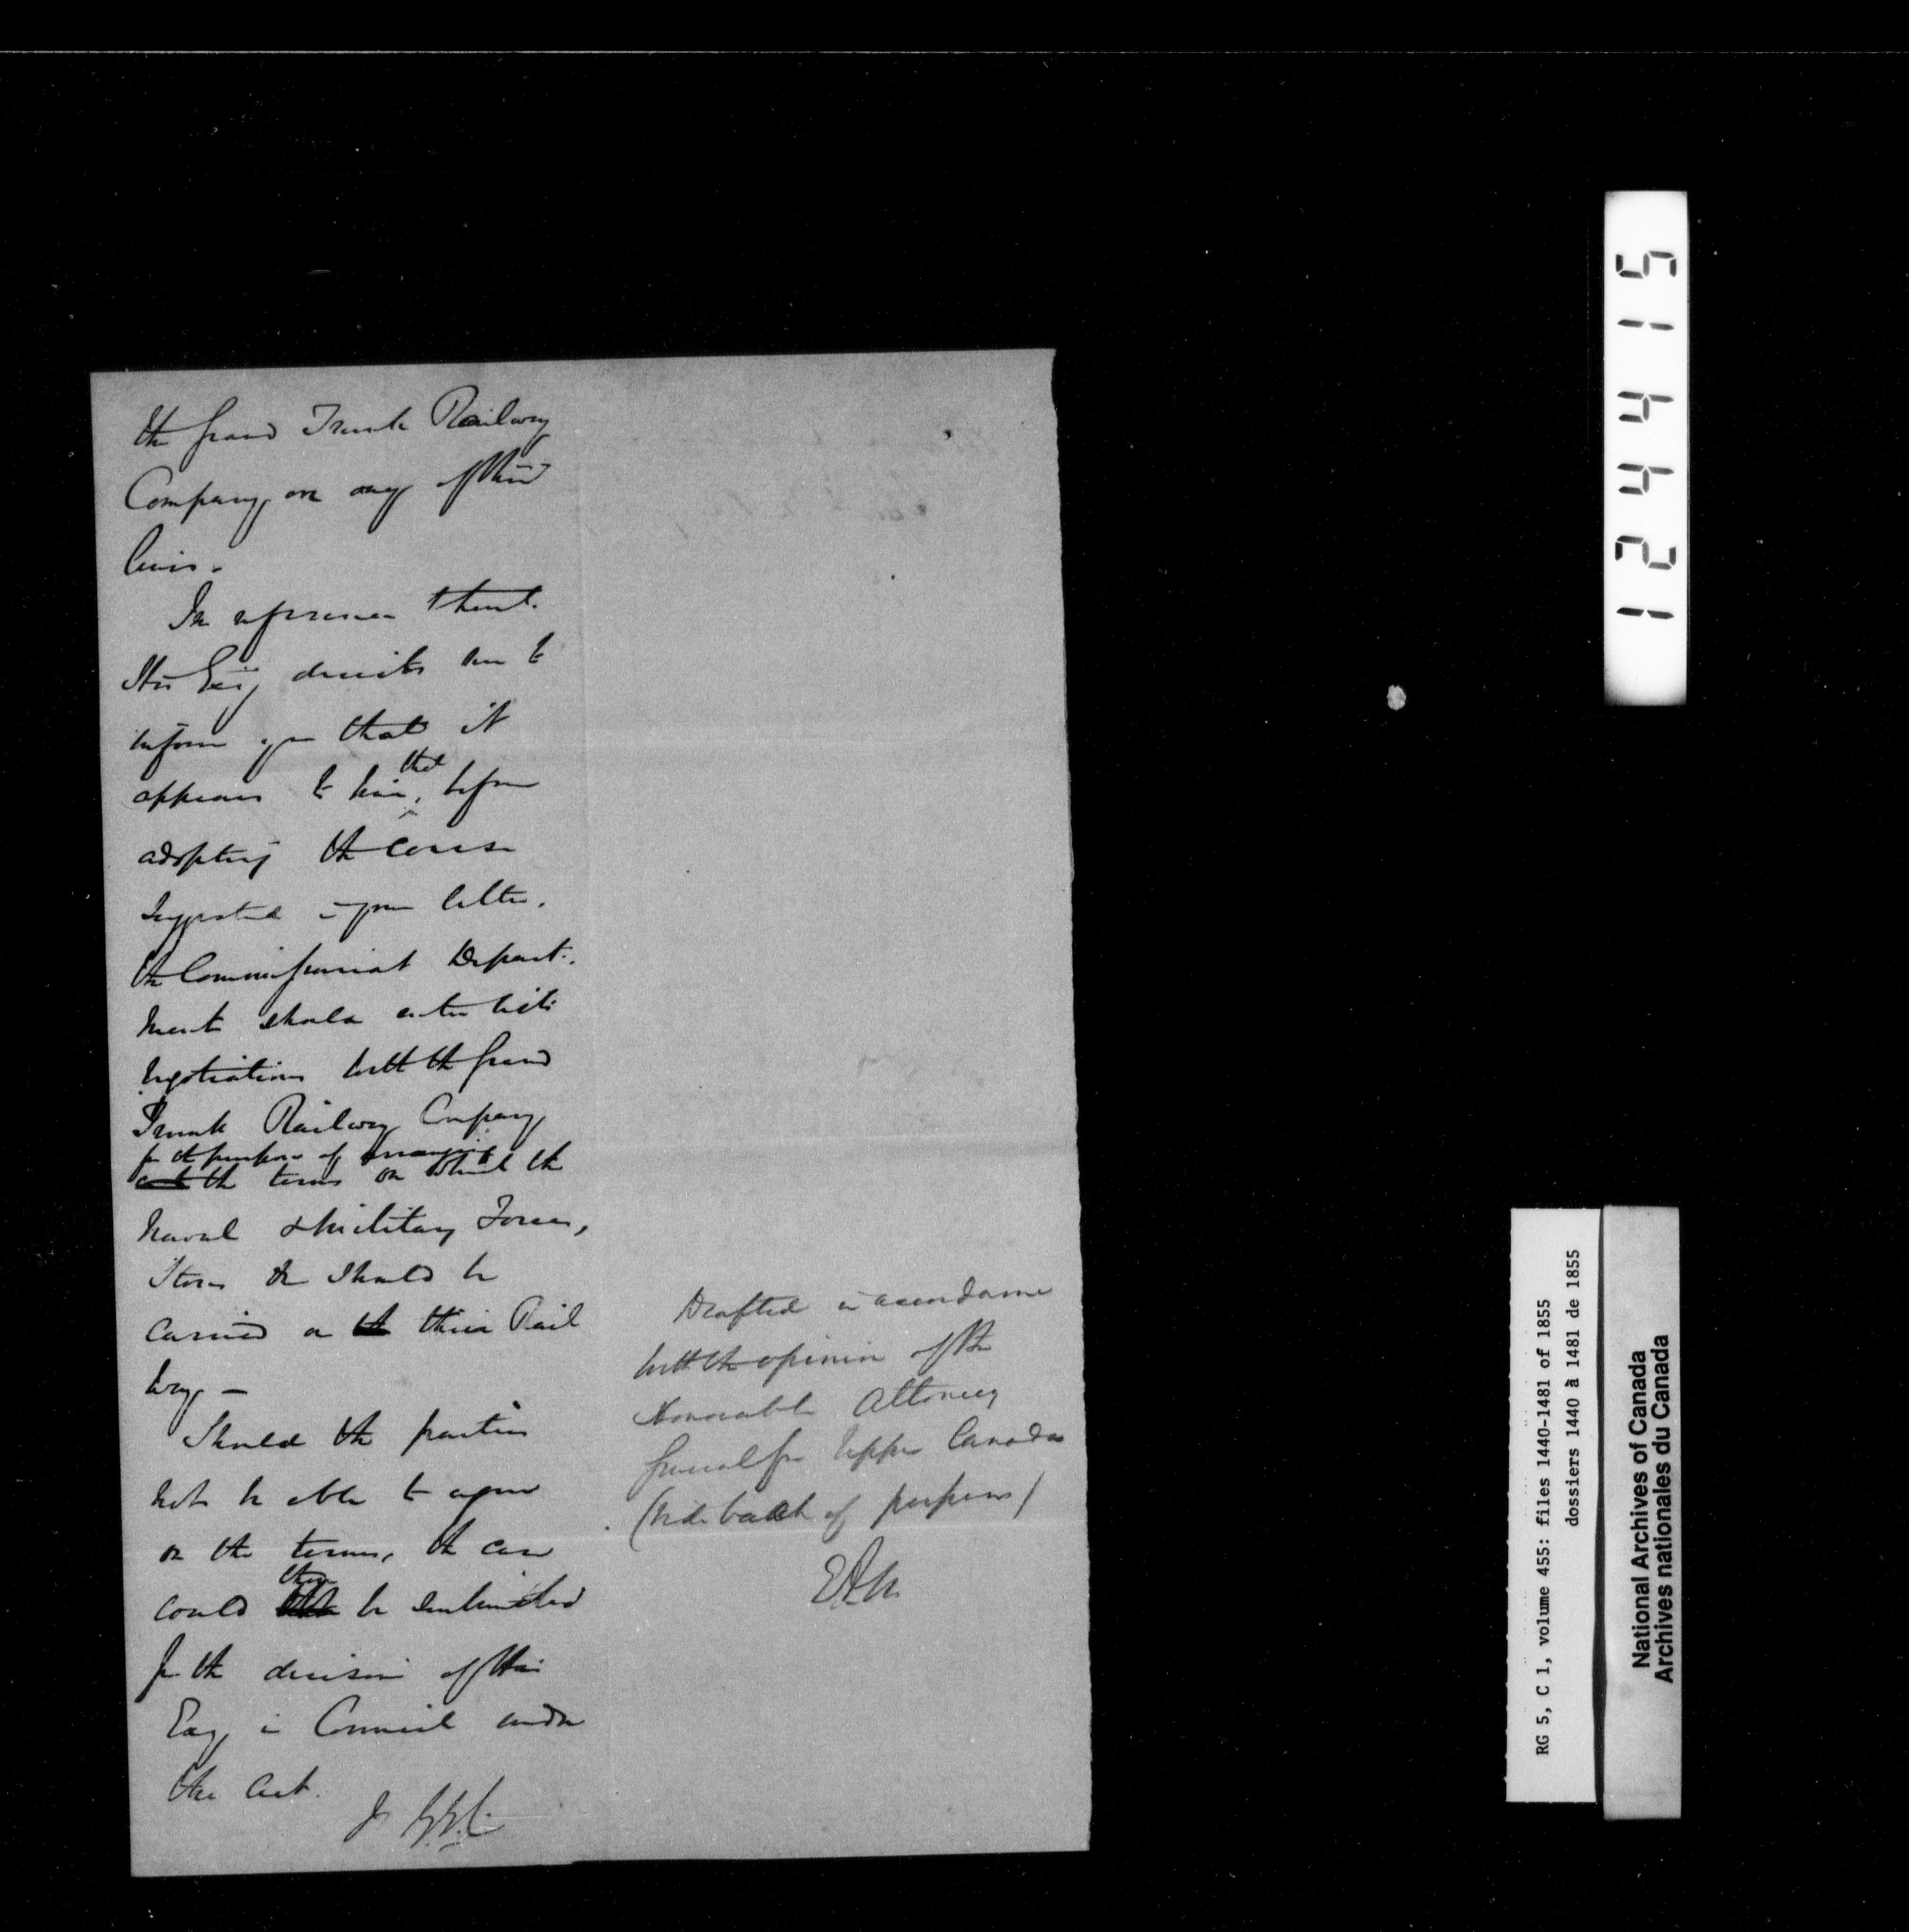 the Grand Trunk Railway
Company, on any of their
lines.
In reference thereto
His Excy directs me to
inform you that it
appears to him, that before
adopting the course
suggested in your letter,
the Commissariat Depart-
ment should enter into
negotiations with the Grand
Trunk Railway Company
for the purpose of arranging
the terms on which the
Naval & Military Forces,
Stores &c should be
carried on their Rail
way –
Should the parties
not be able to agree
on the terms, the case
could then be submitted
for the decision of His
Excy in Council under
the Act.
Drafted in accordance
with the opinion of the
Honorable Attorney
General for Upper Canada
(vide back of papers)
124415
RG 5, C 1, volume 455: files 1440-1481 of 1855
dossiers 1440 à 1481 de 1855
National Archives of Canada
Archives nationales du Canada